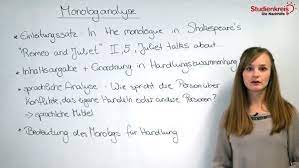 Monologanalyse
Studienkreis
Die Nachhilfe
• Einleitungssatz: In the monologue in Shakespeare's
"Romeo and Juliet" II, 5, Juliet talks about...
• Inhaltsangabe + Einordnung in Handlungszusammenhang
• sprachliche Analyse - Wie spricht die Person über
Konflikte, das eigene Handeln oder andere Personen?
→ sprachliche Mittel
• Bedeutung des Monologs für Handlung